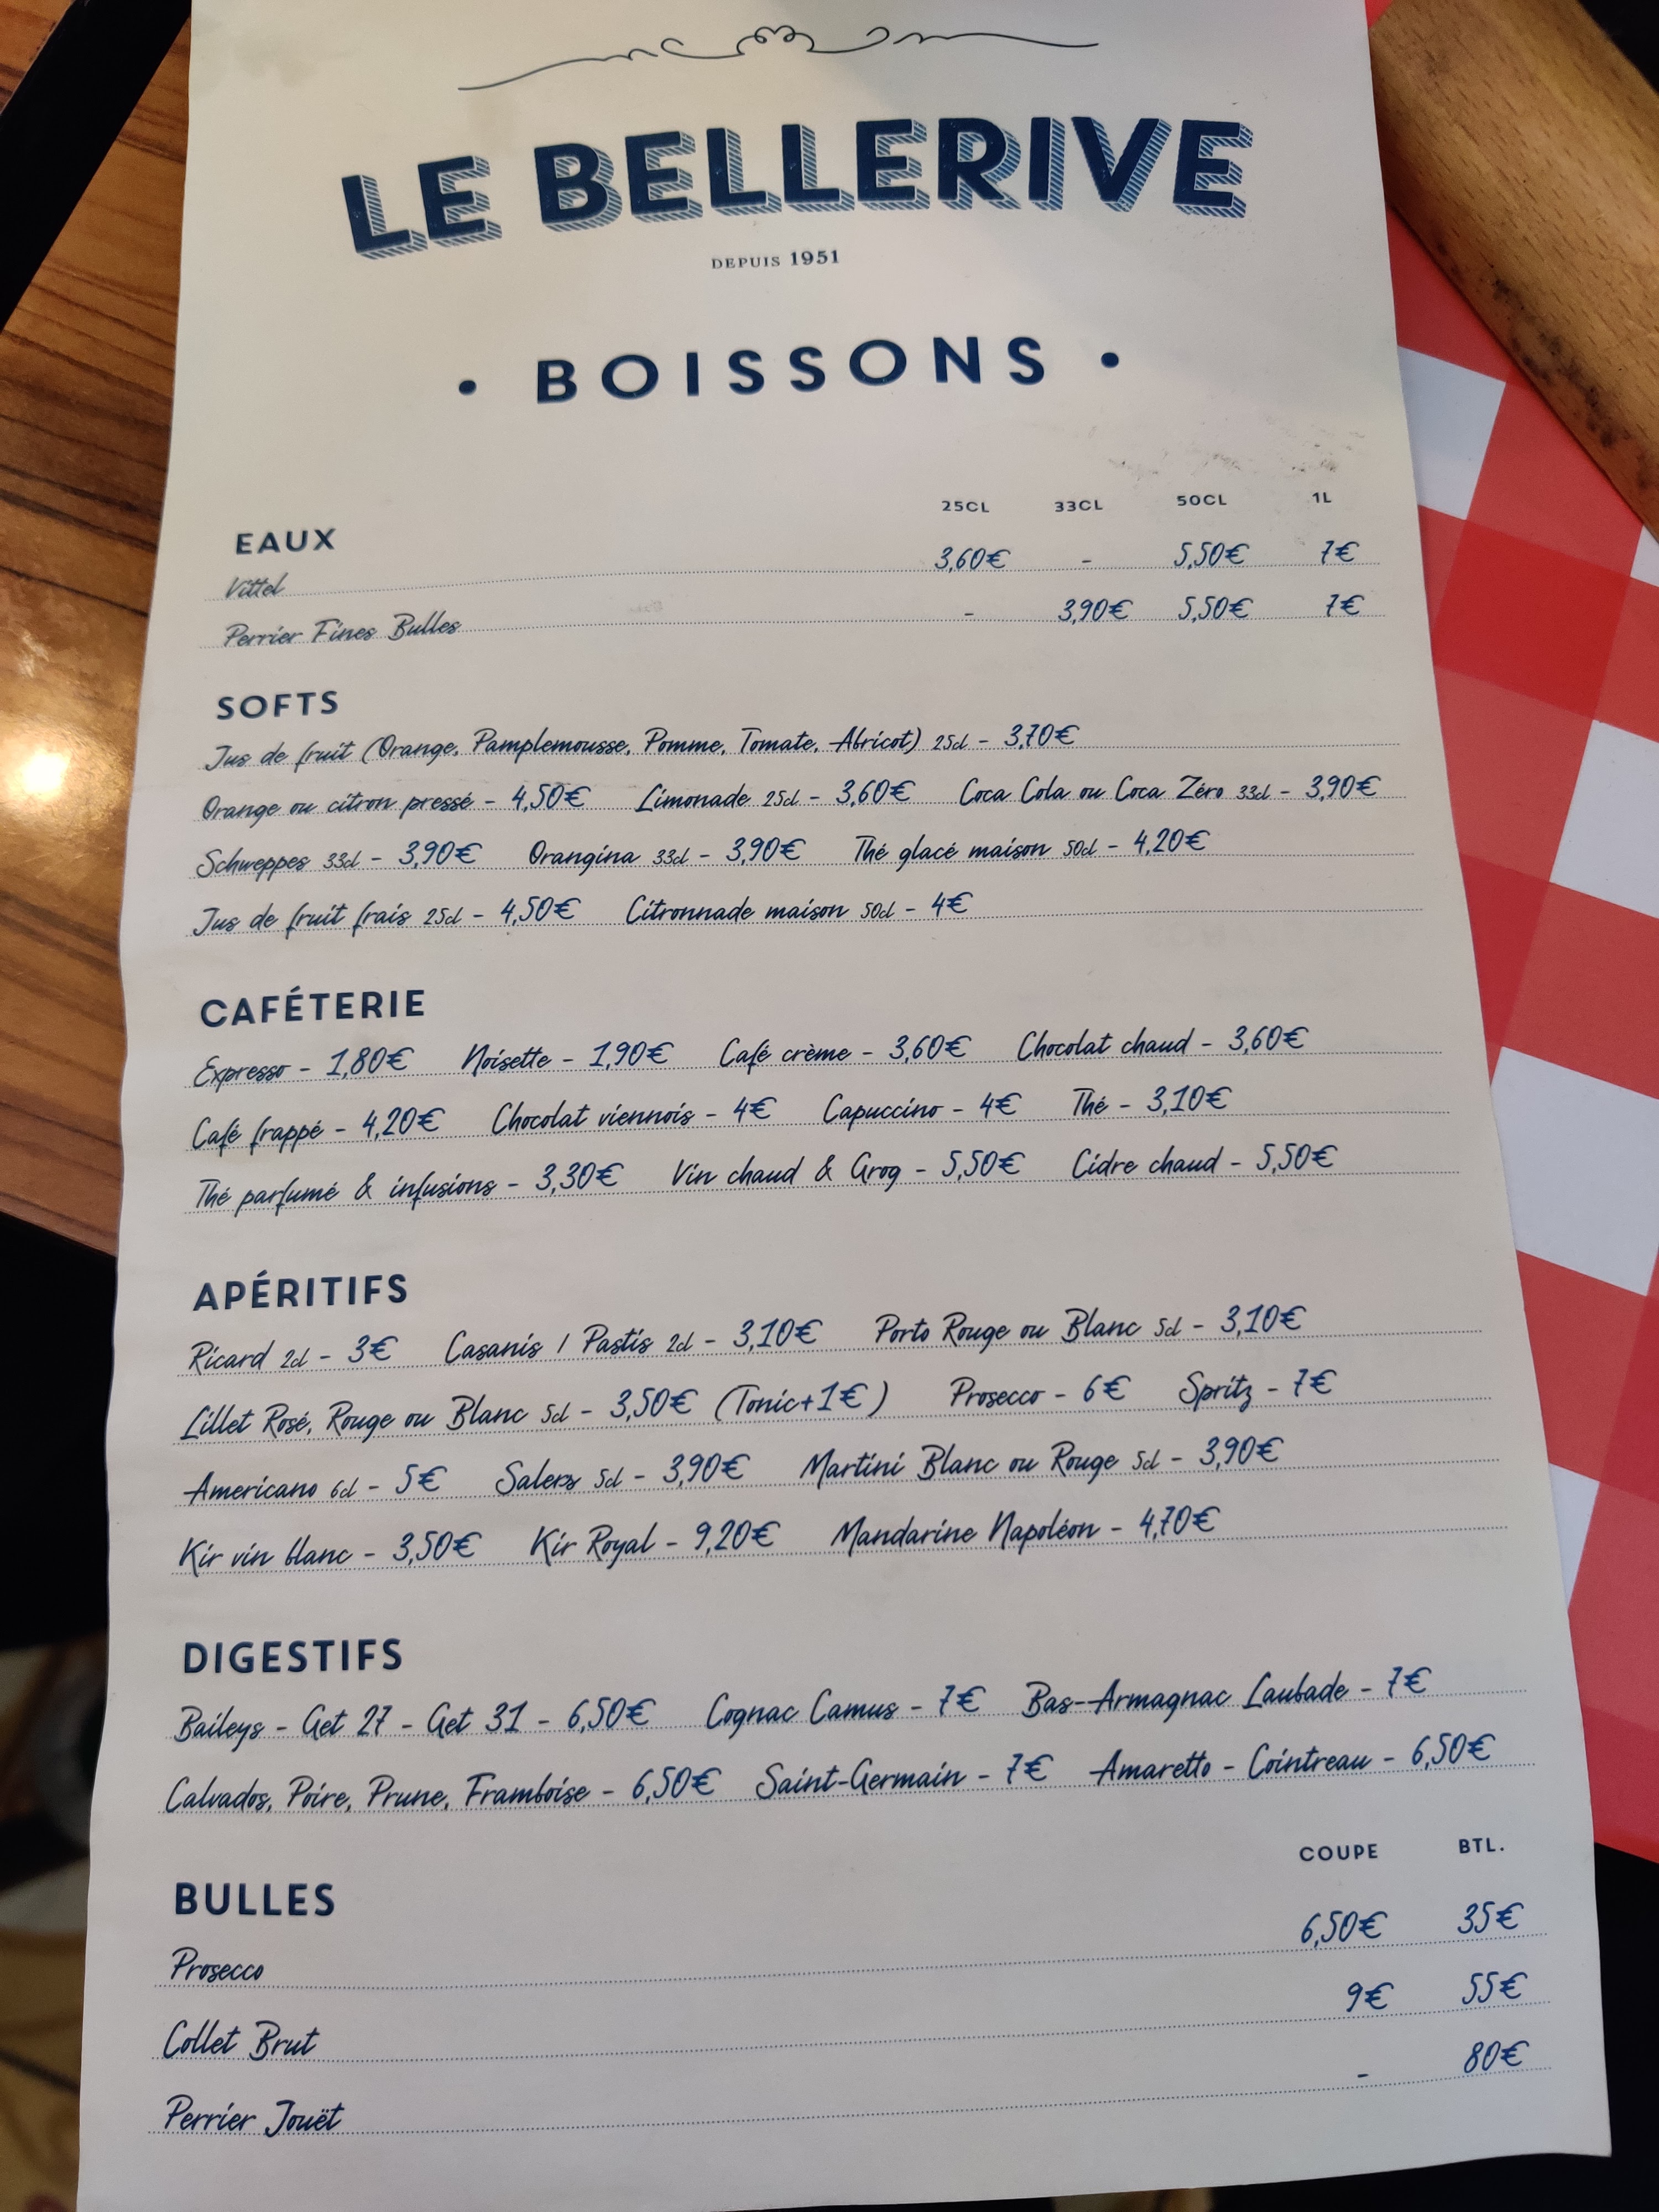 LE BELLERIVE
DEPUIS 1951
• BOISSONS •
25CL 33CL 50CL 1L
EAUX
Vittel 3,60€ - 5,50€ 7€
Perrier Fines Bulles - 3,90€ 5,50€ 7€
SOFTS
Jus de fruit (Orange, Pamplemousse, Pomme, Tomate, Abricot) 25cl - 3,70€
Orange ou citron pressé - 4,50€ Limonade 25cl - 3,60€ Coca Cola ou Coca Zéro 33cl - 3,90€
Schweppes 33cl - 3,90€ Orangina 33cl - 3,90€ Thé glacé maison 50cl - 4,20€
Jus de fruit frais 25cl - 4,50€ Citronnade maison 50cl - 4€
CAFÉTERIE
Expresso - 1,80€ Noisette - 1,90€ Café crème - 3,60€ Chocolat chaud - 3,60€
Café frappé - 4,20€ Chocolat viennois - 4€ Capuccino - 4€ Thé - 3,10€
Thé parfumé & infusions - 3,30€ Vin chaud & Grog - 5,50€ Cidre chaud - 5,50€
APÉRITIFS
Ricard 2cl - 3€ Casanis / Pastis 2cl - 3,10€ Porto Rouge ou Blanc 5cl - 3,10€
Lillet Rosé, Rouge ou Blanc 5cl - 3,50€ (Tonic+1€) Prosecco - 6€ Spritz - 7€
Americano 6cl - 5€ Salers 5cl - 3,90€ Martini Blanc ou Rouge 5cl - 3,90€
Kir vin blanc - 3,50€ Kir Royal - 9,20€ Mandarine Napoléon - 4,70€
DIGESTIFS
Baileys - Get 27 - Get 31 - 6,50€ Cognac Camus - 7€ Bas-Armagnac Laubade - 7€
Calvados, Poire, Prune, Framboise - 6,50€ Saint-Germain - 7€ Amaretto - Cointreau - 6,50€
COUPE BTL.
BULLES
Prosecco 6,50€ 35€
Collet Brut 9€ 55€
Perrier Jouët - 80€